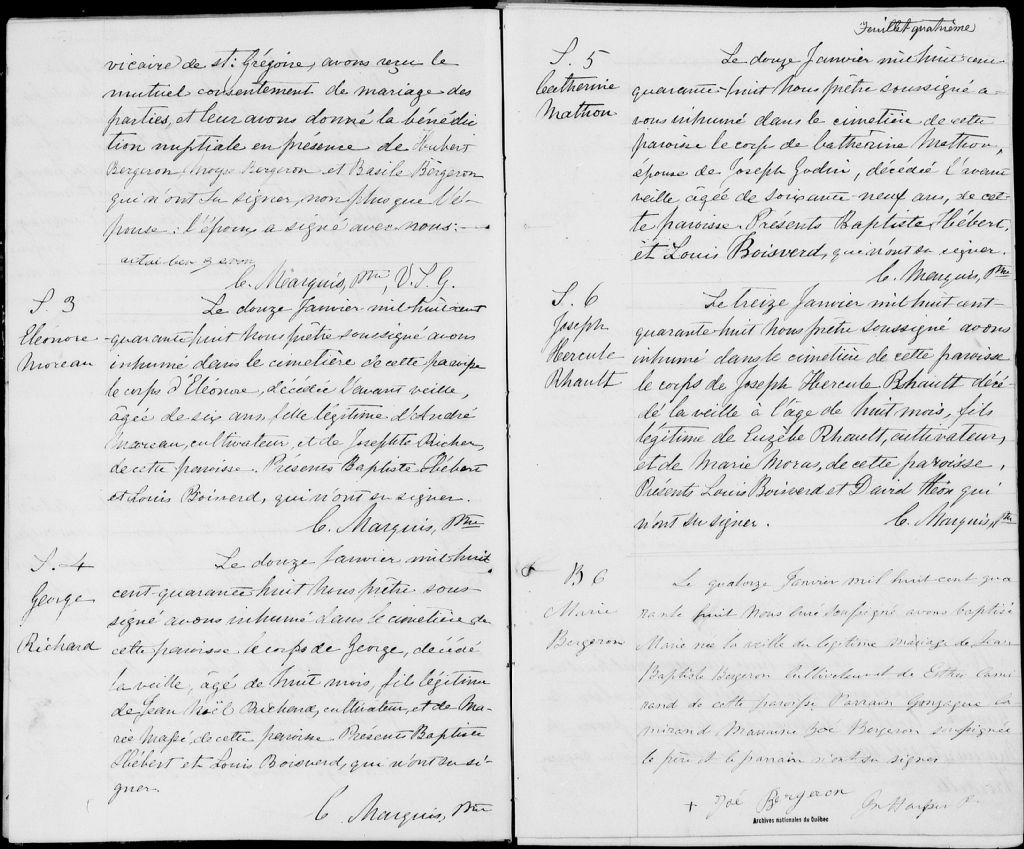 vicaire de st: Grégoire, avons reçu le
mutuel consentement de mariage des
parties, et leur avons donné la bénédic
tion nuptiale en présence de Hubert
Bergeron, Moyse Bergeron et Basile Bergeron
qui n'ont su signer, non plus que l'é-
pouse: l'époux a signé avec nous.
C. Marquis, Ptre, V.S.G.
S. 3
Eléonore
Moreau
Le douze Janvier mil huit cent
quarante-huit Nous prêtre soussigné avons
inhumé dans le cimetière de cette paroisse
le corps d'Eléonore, décédée l'avant veille,
âgée de six ans, fille légitime d'André
Moreau, cultivateur, et de Josephte Richer,
de cette paroisse. Présents Baptiste Hébert
et Louis Boisverd, qui n'ont su signer.
C. Marquis, Ptre
S. 4
George
Richard
Le douze Janvier mil huit
cent quarante huit Nous prêtre sous-
signé avons inhumé dans le cimetière de
cette paroisse le corps de George, décédé
la veille, âgé de huit mois, fils légitime
de Jean Noël Richard, cultivateur, et de Ma-
rie Massé, de cette paroisse. Présents Baptiste
Hébert et Louis Boisverd, qui n'ont su si-
gner.
C. Marquis, Ptre
Feuillet quatrième
S. 5
Catherine
Mathon
Le douze Janvier mil huit cent
quarante-huit Nous prêtre soussigné a-
vons inhumé dans le cimetière de cette
paroisse le corps de Cathérine Mathon,
épouse de Joseph Godin, décédée l'avant
veille âgée de soixante neuf ans, de cet-
te paroisse. Présents Baptiste Hébert,
et Louis Boisverd, qui n'ont su signer.
C. Marquis, Ptre
S. 6
Joseph
Hercule
Rhault
Le treize Janvier mil huit cent-
quarante-huit Nous prêtre soussigné avons
inhumé dans le cimetière de cette paroisse
le corps de Joseph Hercule Rhault décé-
dé la veille à l'âge de huit mois, fils
légitime de Euzèbe Rhault, cultivateur,
et de Marie Moras, de cette paroisse.
Présents Louis Boisverd et David Héon qui
n'ont su signer.
C. Marquis, Ptre
B 6
Marie
Bergeron
Le quatorze Janvier mil huit cent qua
rante huit Nous Curé soussigné avons baptisé
Marie née la veille du légitime mariage de Jean
Baptiste Bergeron Cultivateur et de Esther Cami
rand de cette paroisse Parrain Gonzague Ca
mirand Marraine Zoé Bergeron soussignée
le père et le parrain n'ont su signer
+ Zoé Bergeron
Jn Harper P.
Archives nationales du Québec